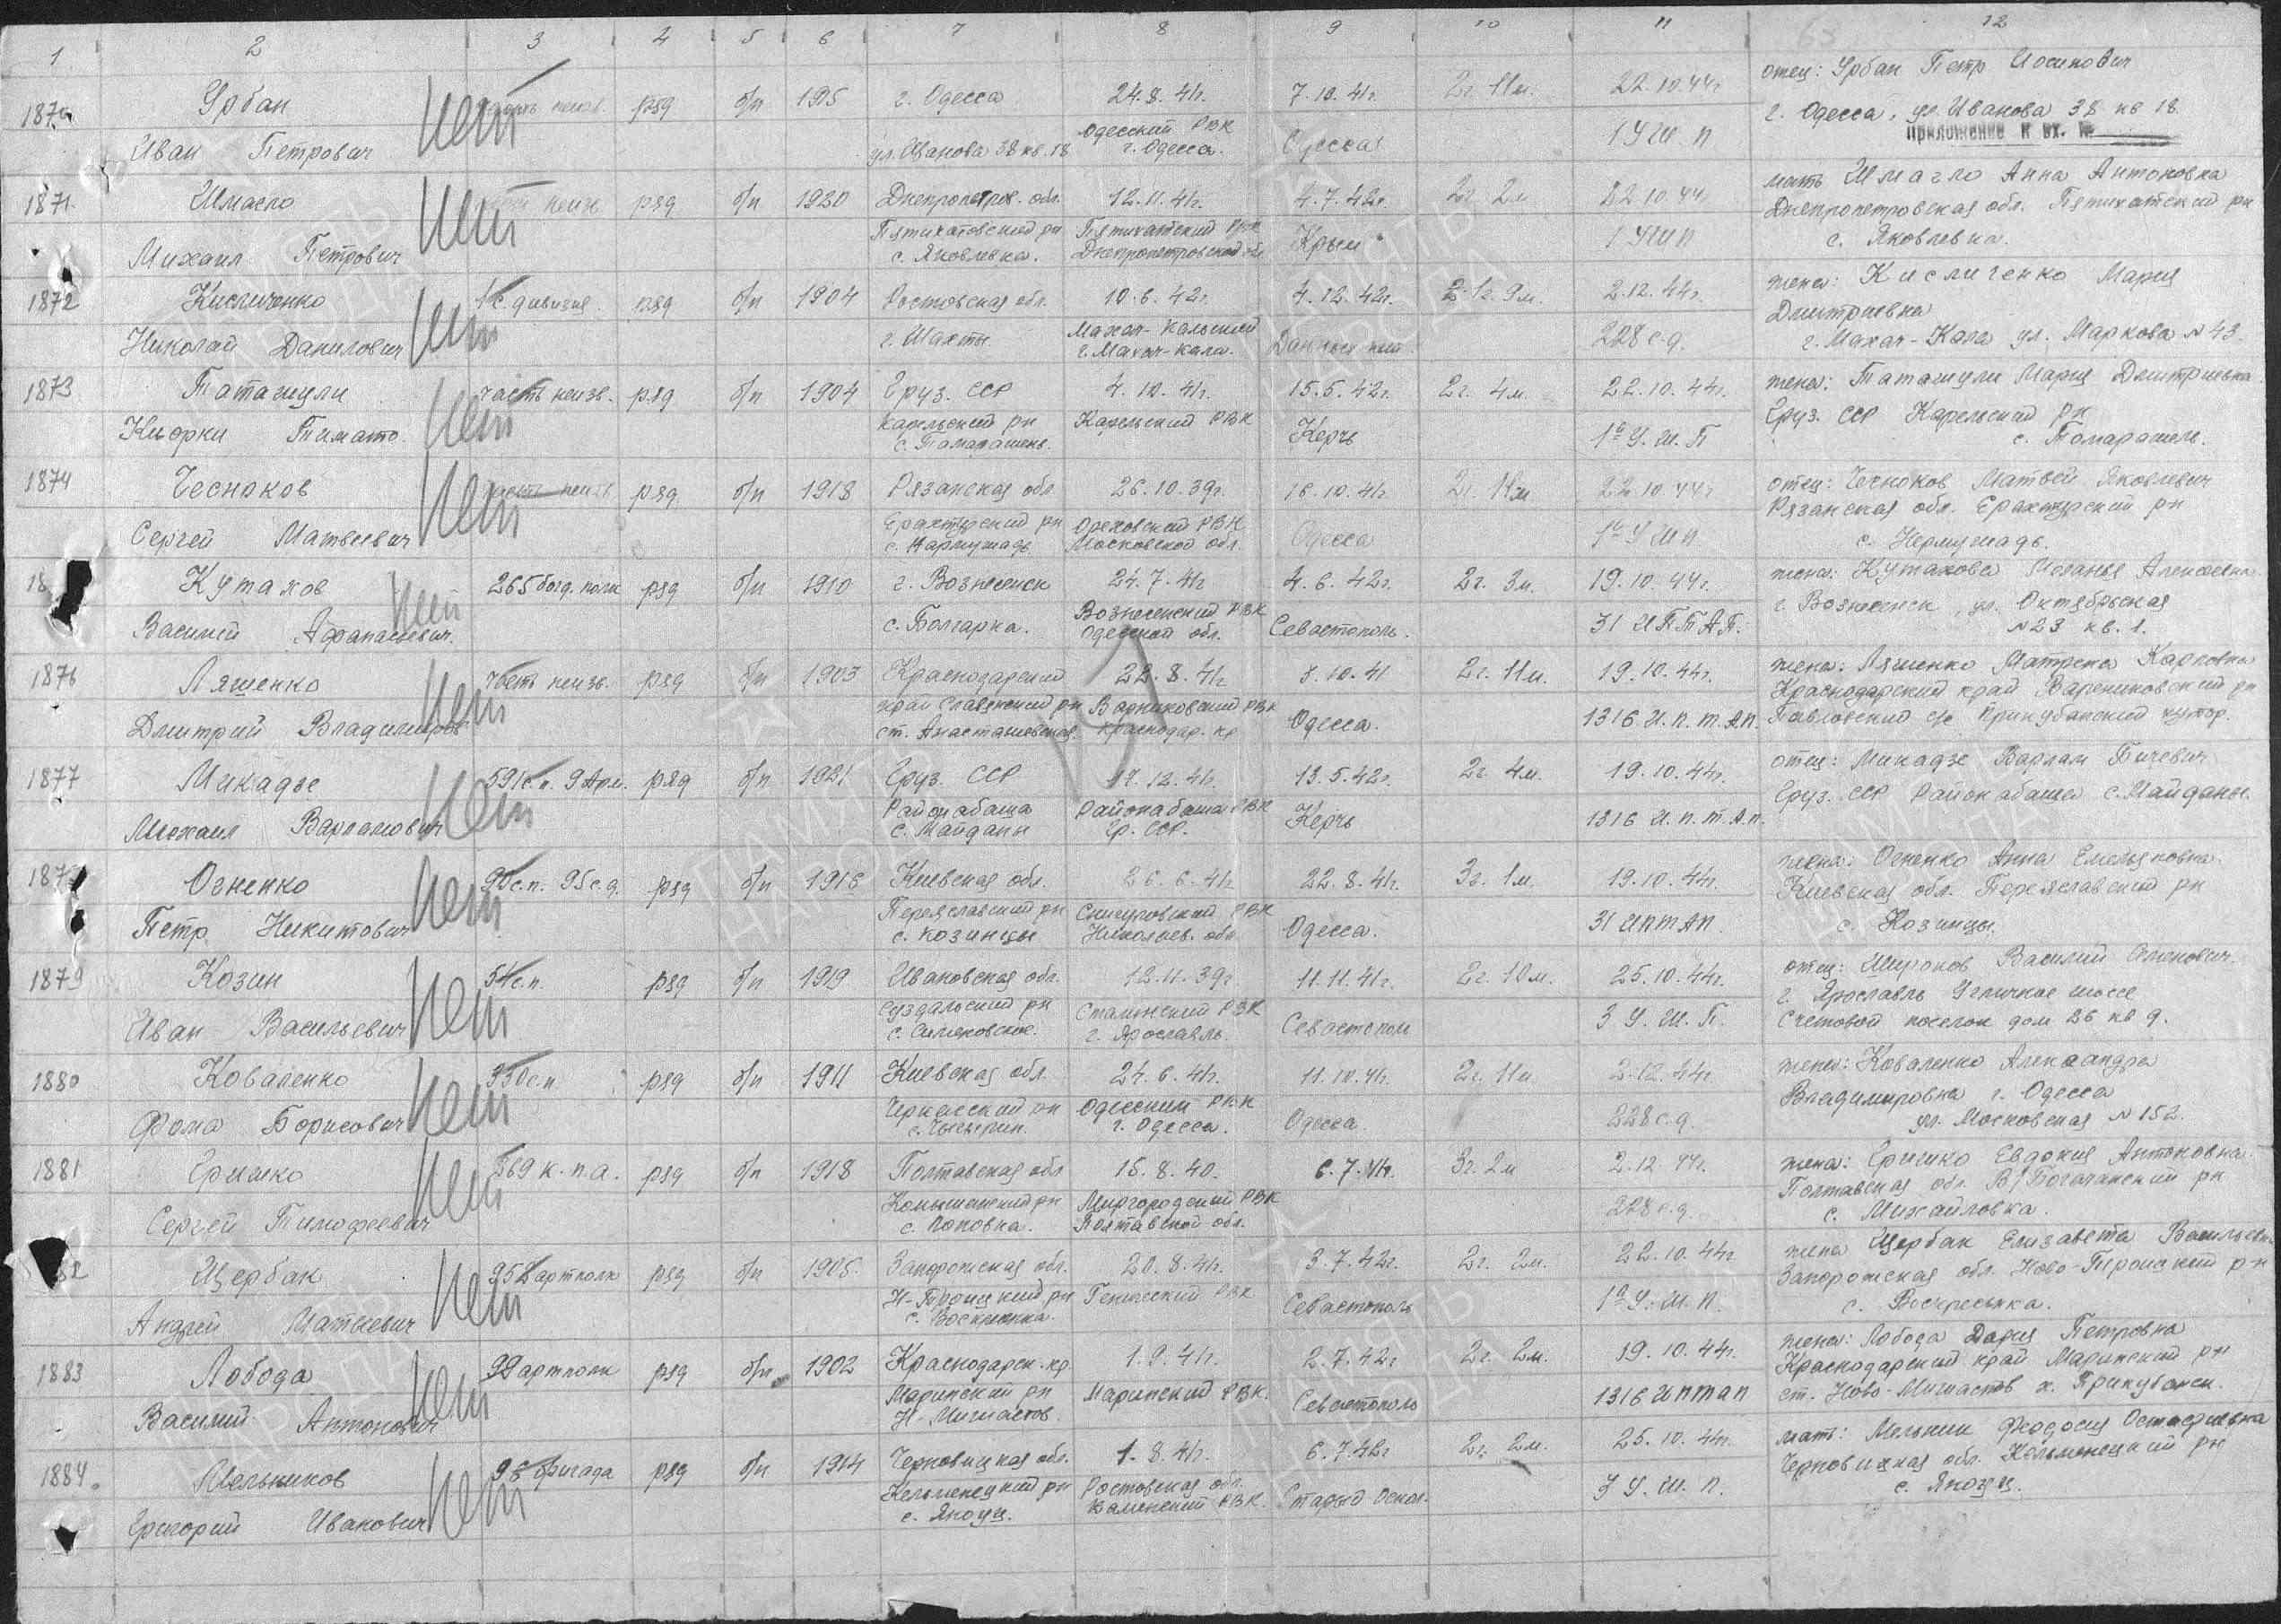 1 2 3 4 5 6 7 8 9 10 11 12
1870 Урбан часть неизв. ряд б/п 1905 г. Одесса 24.8.41г. 7.10.41г. 2г. 11м. 22.10.44г отец: Урбан Петр Иосипович
Иван Петрович нет ул. Иванова 38 кв. 18 Одесский РВК г. Одесса. Одесса 1 У Ш П г. Одесса, ул. Иванова 38 кв 18
приложение к вх. №
1871 Шмагло часть неизв ряд б/п 1920 Днепропетров. обл. 12.11.41г. 4.7.42г. 2г. 2м 22.10.44г мать Шмагло Анна Антоновна
Михаил Петрович нет Пятихатский рн с. Яковлевка. Пятихатский РВК Днепропетровской обл Крым 1 У Ш П Днепропетровская обл. Пятихатский рн
с. Яковлевка.
1872 Кисличенко 1 с. дивизия ряд б/п 1904 Ростовская обл. 10.6.42г. 4.12.42г. 1г. 9м. 2.12.44г. жена: Кисличенко Мария
Николай Данилович нет г. Шахты Махач-Кальский г. Махач-Кала. Данных нет 228 с.д. Дмитриевна
г. Махач-Кала ул. Маркова №43.
1873 Таташули часть неизв. ряд б/п 1904 Груз. ССР 4.10.41г. 15.5.42г. 2г. 4м. 22.10.44г. жена: Таташули Мария Дмитриевна
Киорки Тимато. нет Карельский рн с. Тамарашени. Карельский РВК Керчь 1й У.Ш.П Груз. ССР Карельский рн
с. Томарашели.
1874 Чесноков часть неизв ряд б/п 1918 Рязанская обл 26.10.39г. 16.10.41г 2г. 11м 22.10.44г отец: Чесноков Матвей Яковлевич
Сергей Матвеевич нет Ерахтурский рн с. Нармушадь Ореховский РВК Московской обл. Одесса 1й У Ш П Рязанская обл. Ерахтурский рн
с. Нермушадь.
18 Кутахов 265 богд. полк ряд б/п 1910 г. Вознесенск 24.7.41г 4.6.42г. 2г. 3м. 19.10.44г. жена: Кутахова Меланья Алексеевна
Василий Афанасьевич. нет с. Болгарка. Вознесенский РВК Одесской обл. Севастополь. 31 ИПТАП. г. Вознесенск, ул. Октябрьская
№23 кв. 1.
1876 Ляшенко часть неизв. ряд б/п 1903 Краснодарский 22.8.41г 7.10.41 2г. 11м. 19.10.44г. жена: Ляшенко Матрена Карповна
Дмитрий Владимиров нет край Славянский рн ст. Анастасиевская. Варниковский РВК Краснодар. кр Одесса. 1316 И.П.Т.АП. Краснодарский край Варениковский рн
Павловский с/с Прикубанский хутор.
1877 Микадзе 591 с.п. 9 Арм. ряд б/п 1921 Груз. ССР 17.12.41г. 13.5.42г. 2г 4м. 19.10.44г. отец: Микадзе Варлам Бичевич
Михаил Варламович нет Район абаша с. Майданы Район абаша РВК Гр. ССР. Керчь 1316 И.П.Т.А.П. Груз. ССР Район абаша с. Майданы.
187 Огненко 90 с.п. 95 с.д. ряд б/п 1918 Киевская обл. 26.6.41г 22.8.41г. 3г. 1м. 19.10.44г. жена: Огненко Анна Емельяновна.
Петр Никитович нет Переяславский рн с. Козинцы Снигуровский РВК Николаев. обл Одесса. 31 ИПТАП. Киевская обл. Переяславский рн
с. Козинцы.
1879 Козин 54 с.п. ряд б/п 1919 Ивановская обл. 12.11.39г 11.11.41г. 2г. 10м. 25.10.44г. отец: Широков Василий Семенович.
Иван Васильевич нет Суздальский рн Сталинский РВК г. Ярославль. Севастополь 3 У.Ш.П. г. Ярославль Угличское шоссе
Счетовой поселок дом 26 кв 9.
1880 Коваленко 330 с.п. ряд б/п 1911 Киевская обл. 24.6.41г. 11.10.41г. 2г. 11м 2.12.44г жена: Коваленко Александра
Фома Борисович нет Черкасский рн с. Чигирин. Одесский РВК г. Одесса. Одесса. 228 с.д. Владимировна г. Одесса
ул. Московская №152.
1881 Гришко 569 к.п.а. ряд б/п 1918 Полтавская обл 15.8.40. 6.7.41г. 3г. 2м 2.12.44г. жена: Гришко Евдокия Антоновна.
Сергей Тимофеевич нет Комышанский рн с. Поповка. Миргородский РВК Полтавской обл. 228 с.д. Полтавская обл. В/Богачанский рн
с. Михайловка.
82 Щербак 952 артполк ряд б/п 1905. Запорожская обл. 20.8.41г. 3.7.42г. 2г. 2м. 22.10.44г жена Щербак Елизавета Васильевн
Андрей Матвеевич нет Н-Троицкий рн Генический РВК Севастополь 1й У.Ш.П. Запорожская обл. Ново-Троиский рн
с. Воскресенка.
1883 Лобода 99 артполк ряд б/п 1902 Краснодарск. кр. 1.9.41г. 2.7.42г 2г. 2м. 19.10.44г. жена: Лобода Дария Петровна
Василий Антонович нет Марипский рн Н-Мишастов. Марипский РВК. Севастополь 1316 ИПТАП Краснодарский край Марипский рн
ст. Ново-Мишастов х. Прикубанск.
1884. Мельников 98 бригада ряд б/п 1914 Черновицкая обл. 1.8.41г. 6.7.42г 2г. 2м. 25.10.44г. мать: Мельник Феодосия Остафиевна
Григорий Иванович нет Кельменецкий рн с. Яноуц. Ростовская обл. Каменский РВК. Старый Оскол. 3 У.Ш.П. Черновицкая обл. Кельменецкий рн
с. Яноуц.